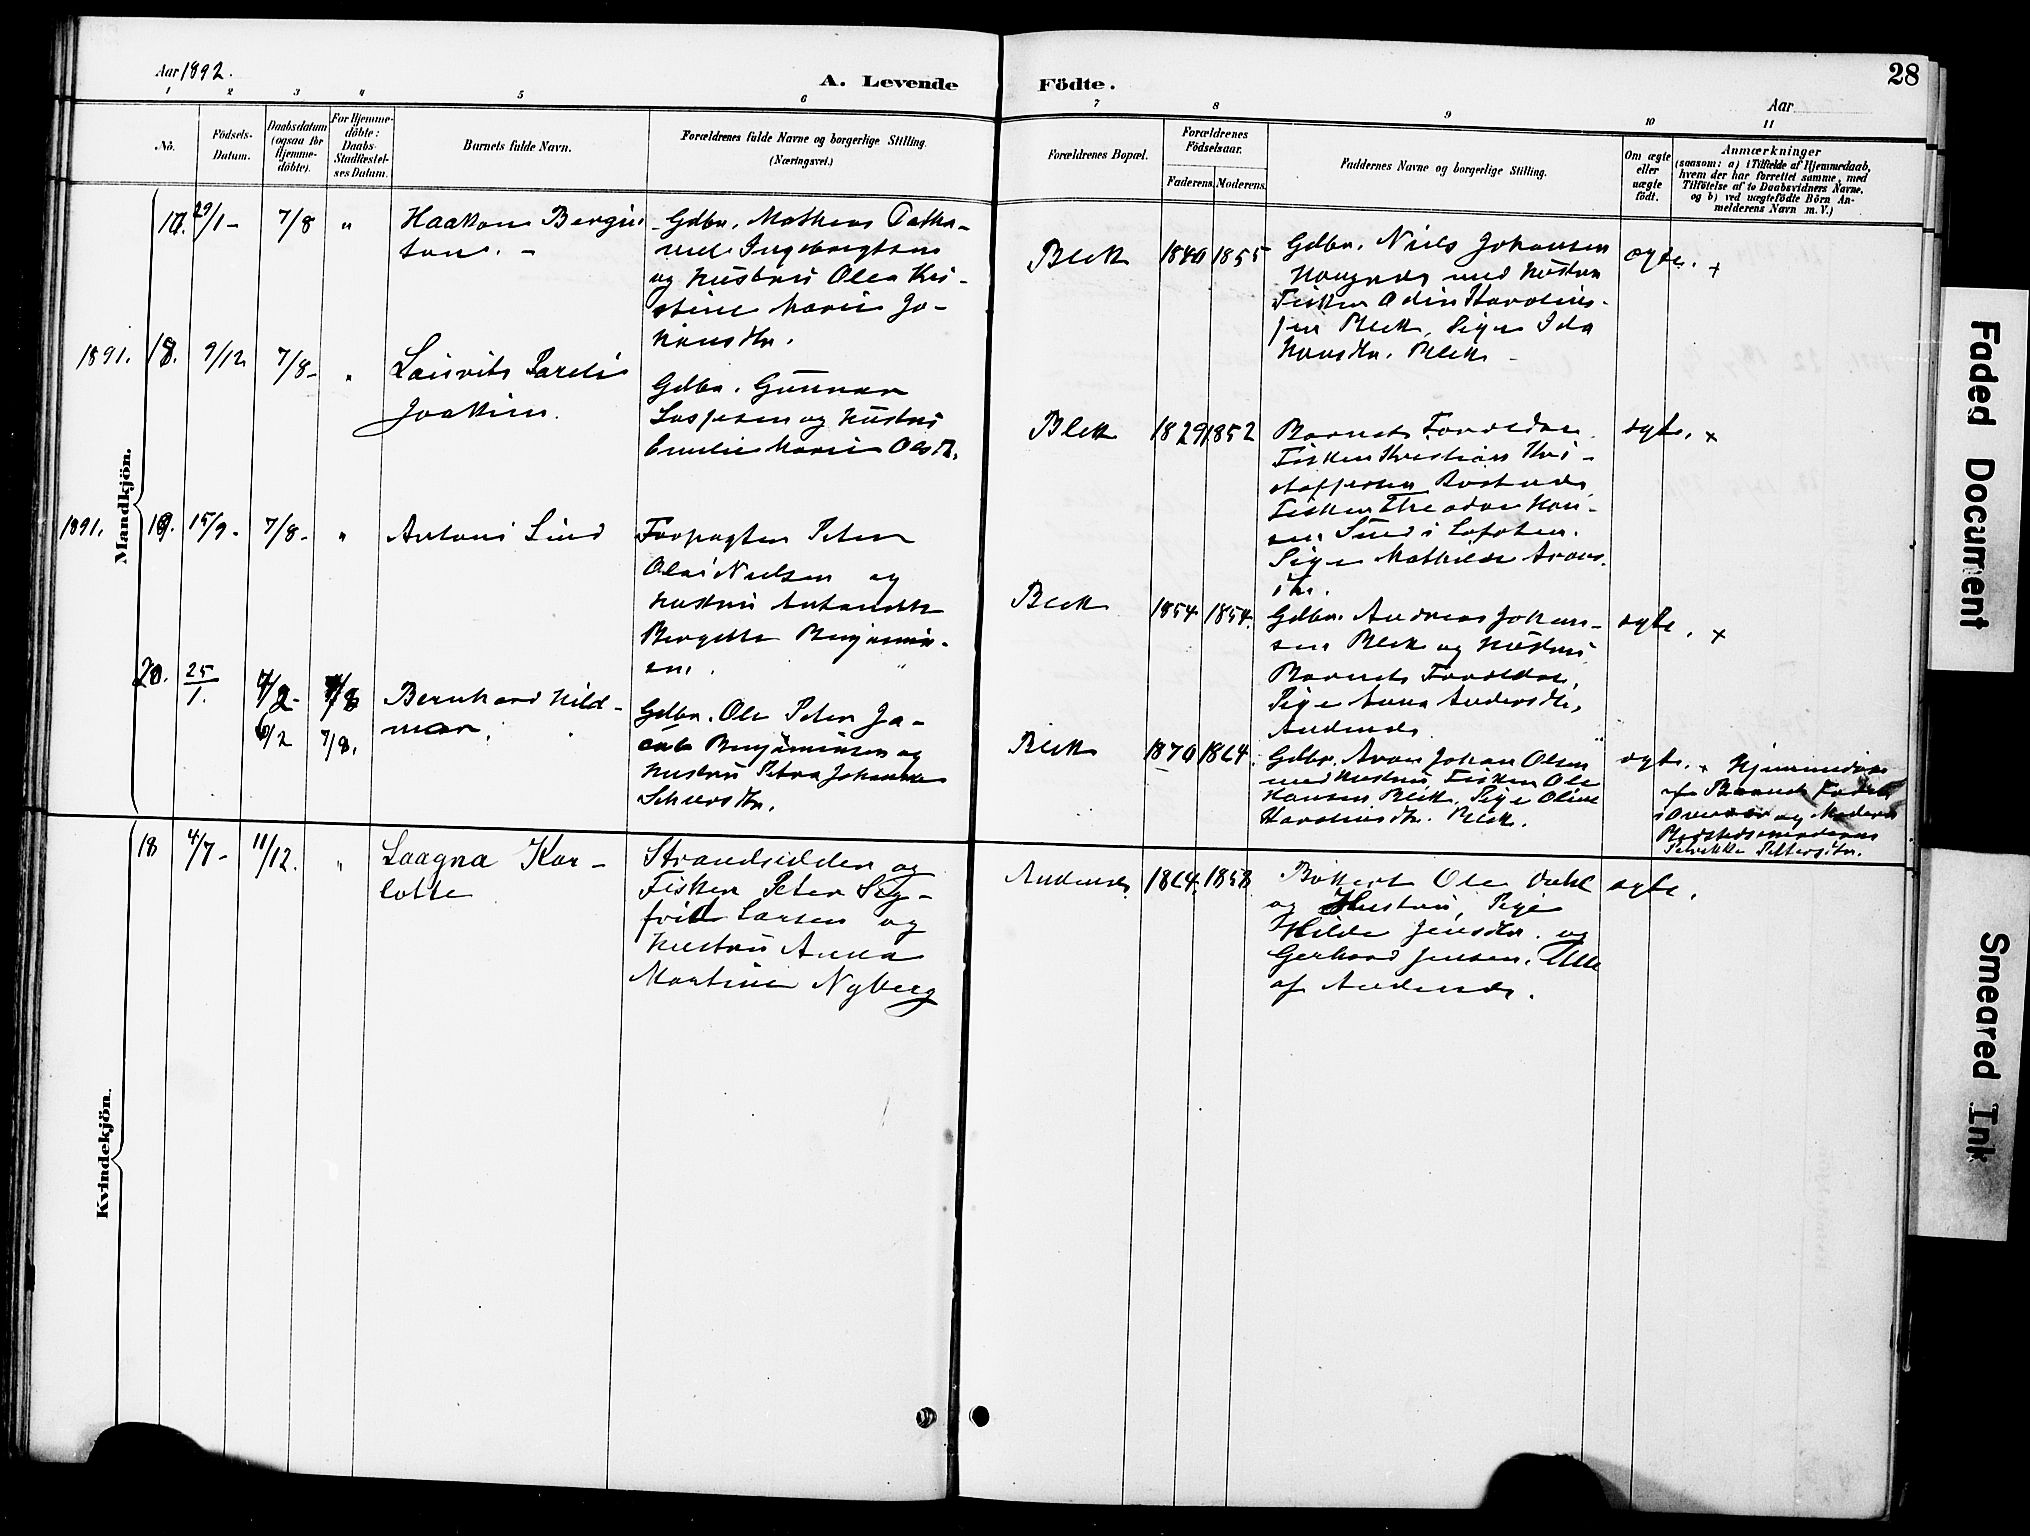 Aar 1892.
A. Levende
Födte.
28
Aar
1
2
3
4
5
6
7
8
9
10
11
No.
Födsels-
Datum.
Daabsdatum
(ogsaa for
Hjemme-
döbte).
For Hjemme-
döbte:
Daabs-
Stadfæstel-
ses Datum.
Barnets fulde Navn.
Forældrenes fulde Navne og borgerlige Stilling.
(Næringsvei.)
Forældrenes Bopæl.
Forældrenes
Födselsaar.
Faderens.
Moderens.
Faddernes Navne og borgerlige Stilling.
Om ægte
eller
uægte
födt.
Anmærkninger
(saasom: a) i Tilfælde af Hjemmedaab,
hvem der har forrettet samme, med
Tilföielse af to Daabsvidners Navne,
og b) ved uægtefödte Börn An-
melderens Navn m. V.)
Mandkjön.
17. 29/1- 7/8 "
Haakon Bergit-
son. -
Gdbr. Mathias
Ingebrigtsen
og Hustru Olea Kri-
stine Marie Jo-
hansdtr.
Blek 1840 1855
Gdbr. Niels Johansen
Haugnæs med Hustru
Fisker Odin Karolius-
sen Blek, Pige Ida
Hansdtr. Blek -
ægte. +
1891. 18. 9/12 7/8- "
Joakim.
Gdbr. Gunnar
og Hustru
Emelie Marie Olsdtr.
Blek 1829 1852
Barnets Forældre.
Fisker Kristian Kri-
stoffersen
Fisker Theodor Han-
sen Sund i Lofoten.
Pige Mathilde Arons-
dtr.
ægte. +
1891. 19. 15/9- 7/8- "
Antoni Lind
Forpagter Peter
Olai Nielsen og
Hustru Antonette
Bergitte Benjamin-
sen.
Blek 1854 1854.
Gdbr. Andreas Johan-
sen Blek og Hustru,
Barnets Forældre,
Pige Anna Andersdtr,
Andenæs
ægte. +
20. 25/1. 7/2- 7/8
6/2 7/8.
Bernhard Hild-
mar.
Gdbr. Ole Peter Ja-
cob Benjaminsen og
Hustru Petra Johanna
Schersdtr.
Blek 1870 1864.
Gdbr. Aron Johan Olsen
med Hustru Fisker Ole
Hansen Blek, Pige Oline
Karoliusdtr. Blek.
ægte. + Hjemmedøbt
af Barnets Fader
i Overvær og Moderen
Petrikke Pettersdtr.
Kvindekjön.
18 4/7- 11/12. "
Laagna Kar-
lotte
Strandsidder og
Fisker Peter Sig-
frid Larsen og
Hustru Anna
Martine Nyberg
Andenæs 1864. 1858
Ole Dahl
og Hustru, Pige
Hilda Jensdtr. og
Gerhard Jensen. Alle
af Andenæs.
ægte.
Faded Document
Smeared Ink